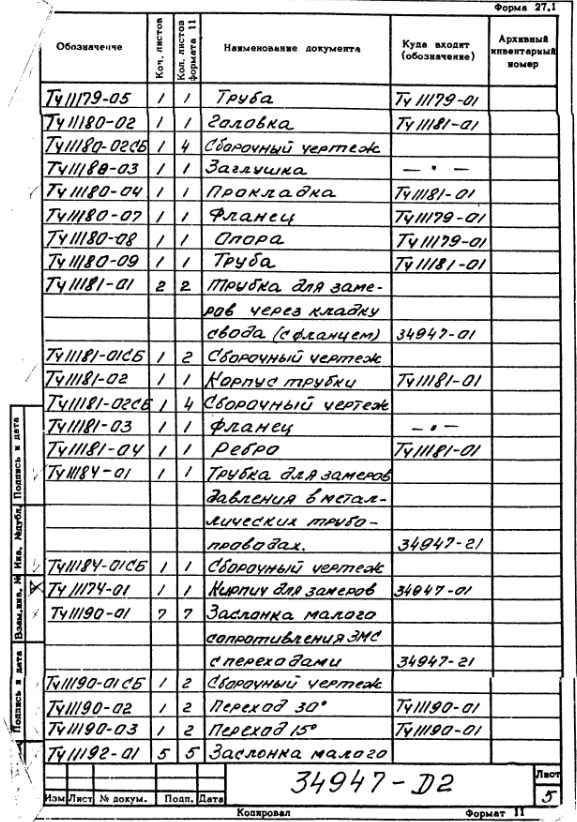 Форма 27.1
Обозначение Кол. листов Кол. листов формата 11 Наименование документа Куда входит (обозначение) Архивный инвентарный номер
Ту11179-05 1 1 Труба Ту11179-01
Ту11180-02 1 1 Головка Ту11181-01
Ту11180-02СБ 1 4 Сборочный чертеж
Ту11180-03 1 1 Заглушка — " —
Ту11180-04 1 1 Прокладка Ту11181-01
Ту11180-07 1 1 Фланец Ту11179-01
Ту11180-08 1 1 Опора Ту11179-01
Ту11180-09 1 1 Труба Ту11181-01
Ту11181-01 2 2 Трубка для заме-
ров через кладку
свода (с фланцем) 34947-01
Ту11181-01СБ 1 2 Сборочный чертеж
Ту11181-02 1 1 Корпус трубки Ту11181-01
Ту11181-02СБ 1 4 Сборочный чертеж
Ту11181-03 1 1 Фланец — " —
Ту11181-04 1 1 Ребро Ту11181-01
Ту11184-01 1 1 Трубка для замеров
давления в метал-
лических трубо-
проводах. 34947-21
Ту11184-01СБ 1 1 Сборочный чертеж
Ту11174-01 1 1 Кирпич для замеров 34947-01
Ту11190-01 7 7 Заслонка малого
сопротивления ЗМС
с переходами 34947-21
Ту11190-01СБ 1 2 Сборочный чертеж
Ту11190-02 1 2 Переход 30° Ту11190-01
Ту11190-03 1 2 Переход 15° Ту11190-01
Ту11192-01 5 5 Заслонка малого
Подпись и дата
Инв. №дубл.
Взам.инв. №
Подпись и дата
Изм Лист № докум. Подп. Дата
34947-D2
Лист
5
Копировал Формат 11